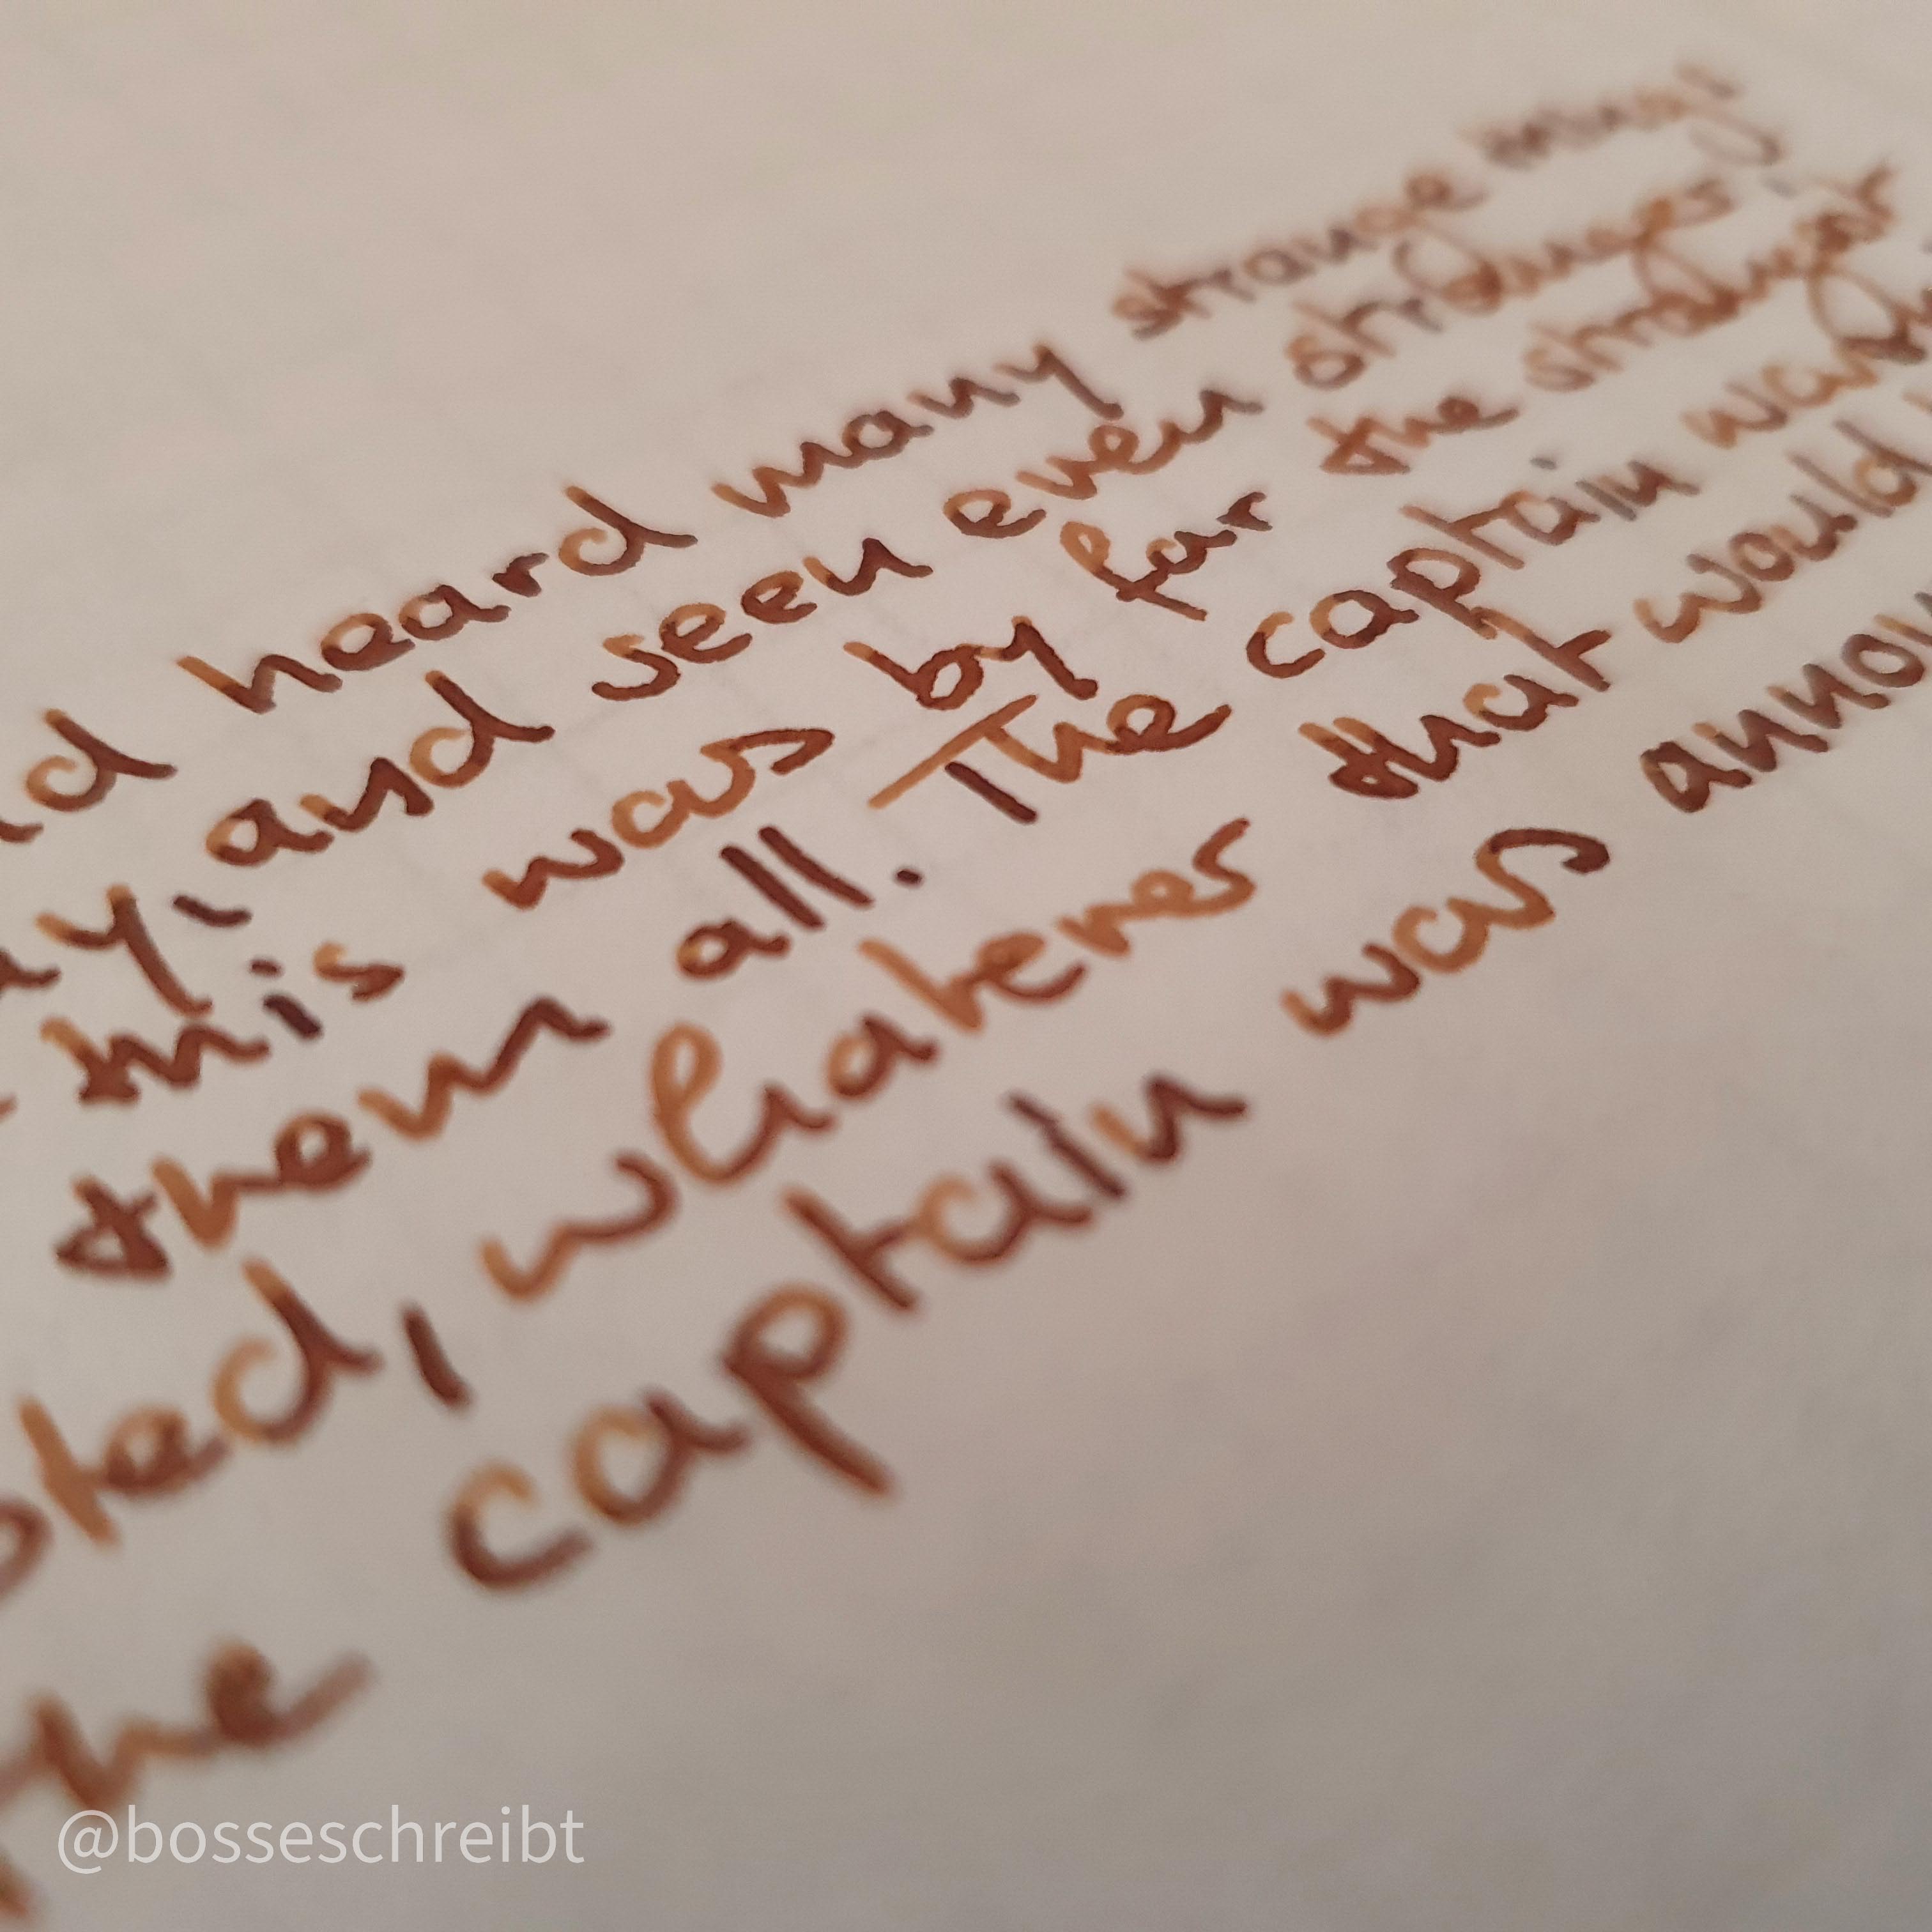 d heard many strange
y, and seen even stranger
this was by far the strangest
them all. The captain
ted, whatever that would
the captain was anno
@bosseschreibt